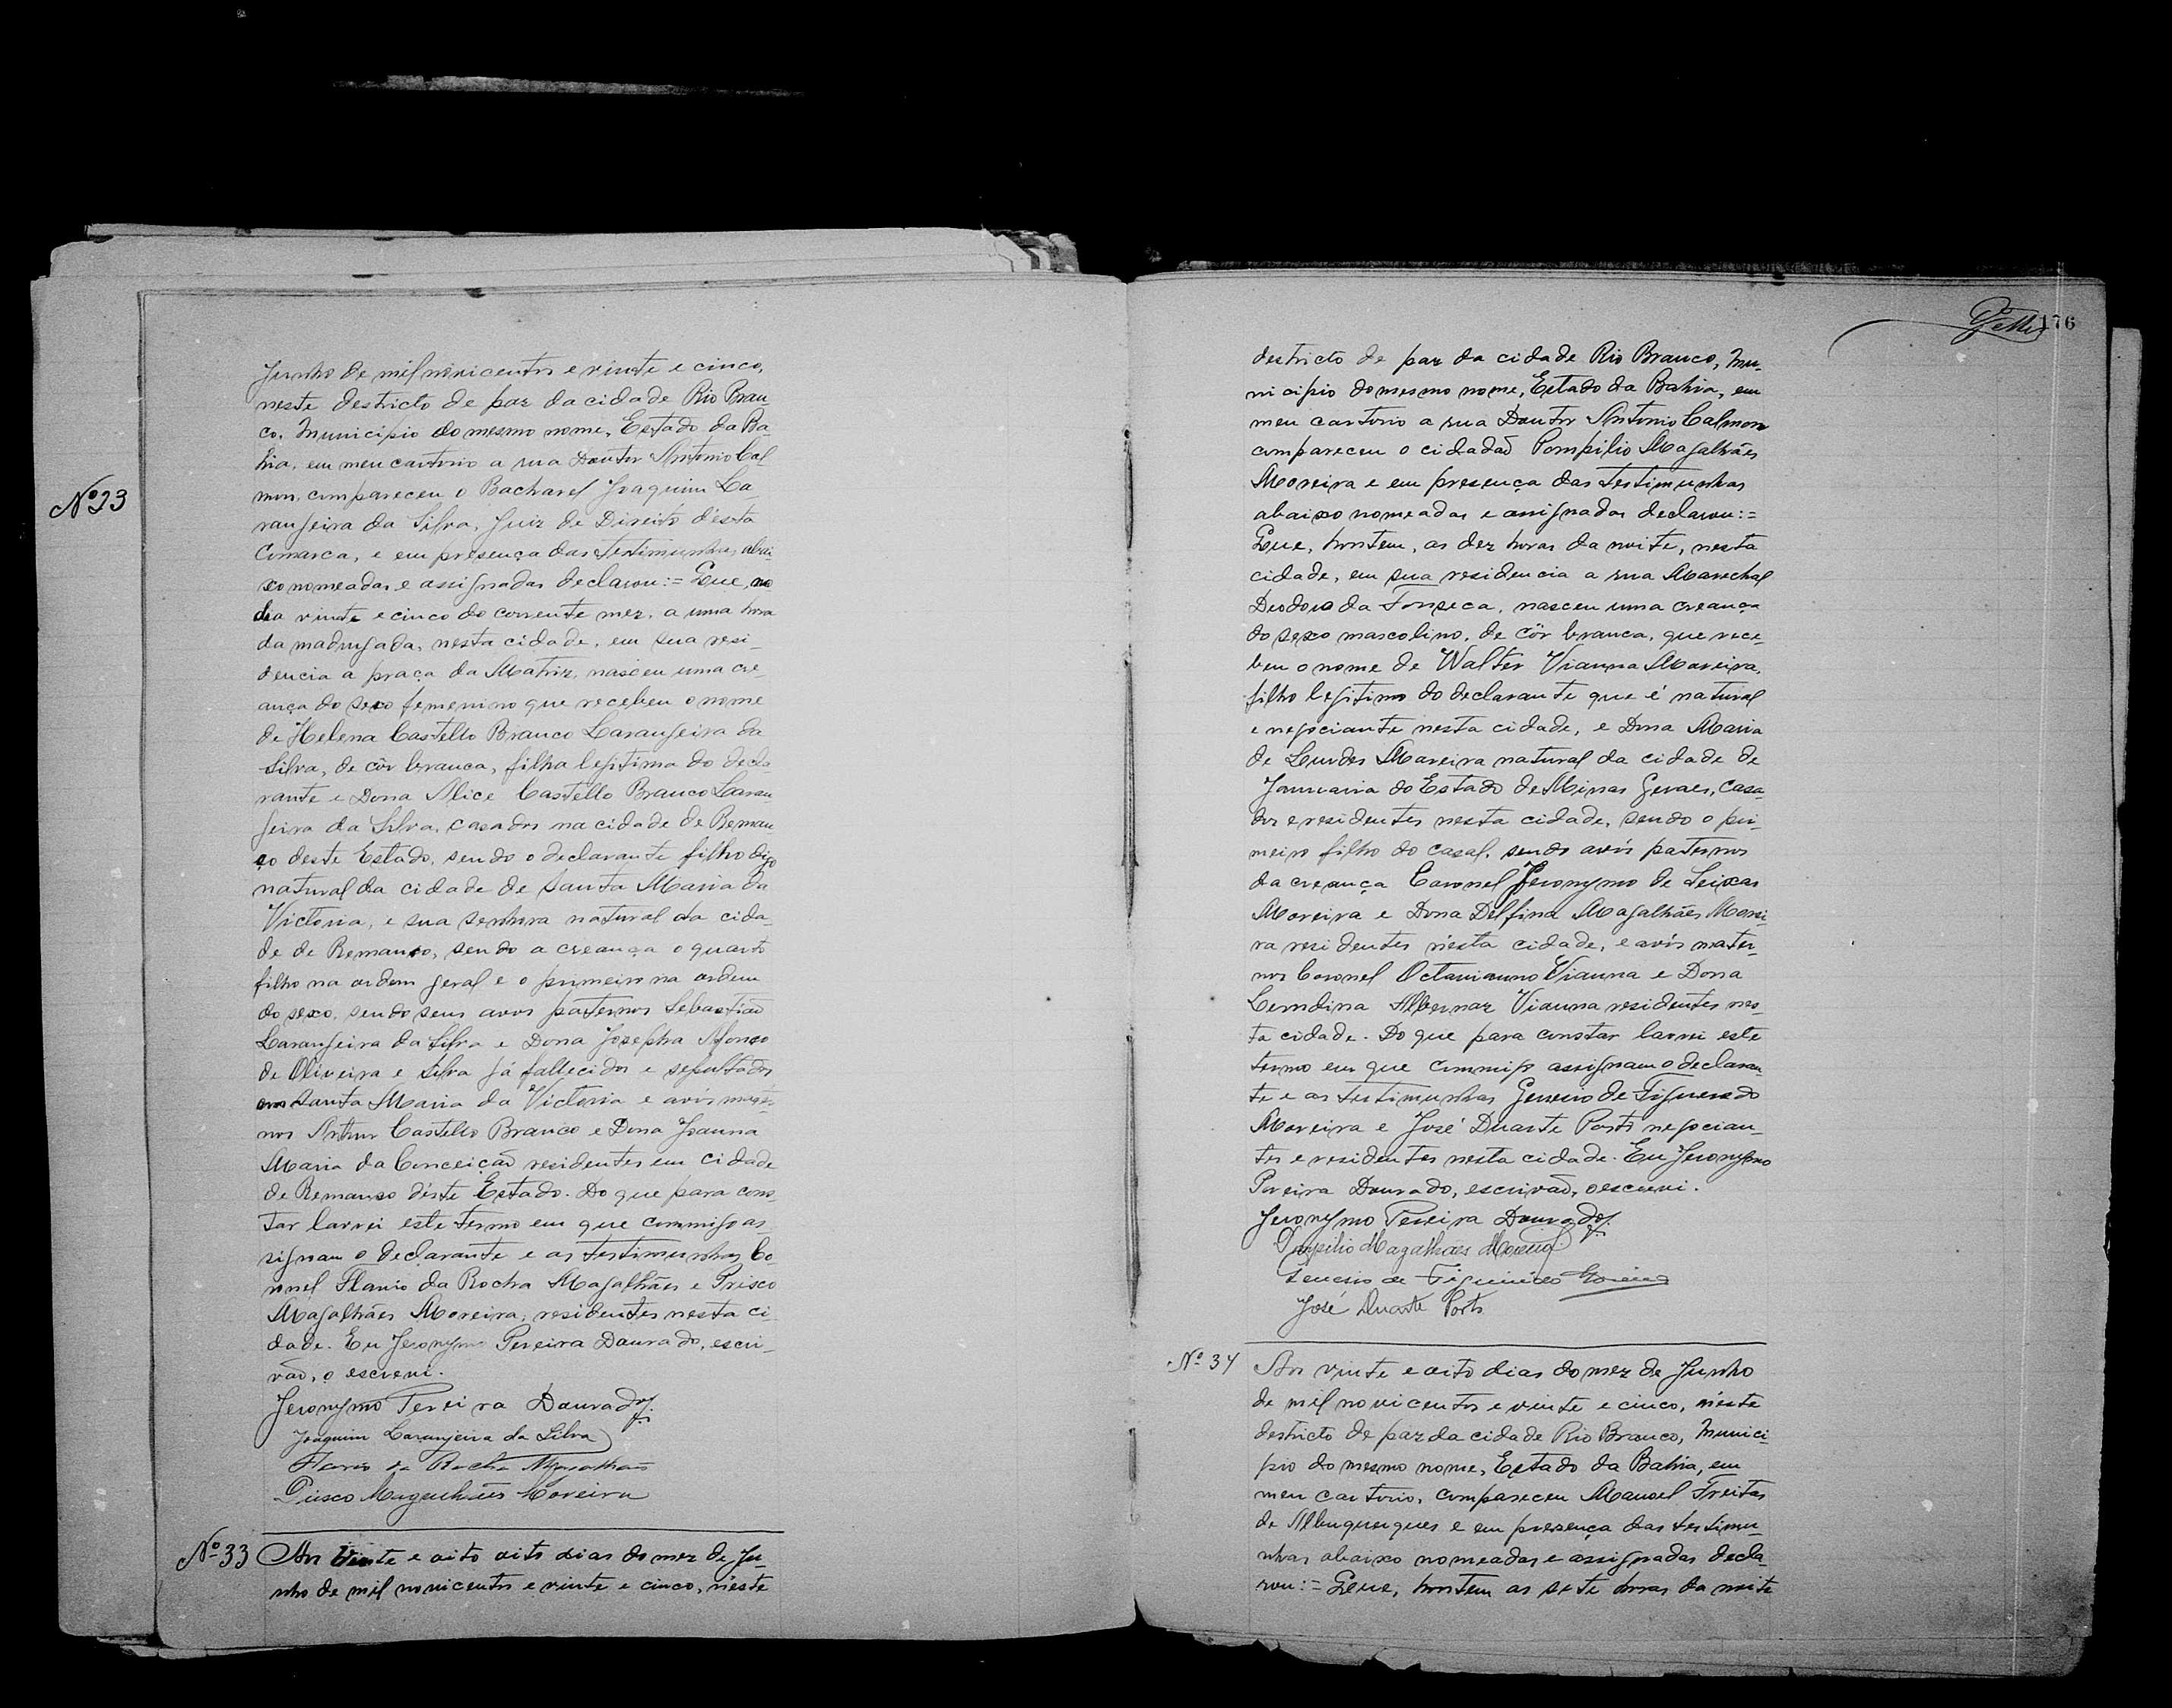 Nº 23
Junho de mil novicentos e vinte e cinco,
neste destricto de paz da cidade Rio Bran-
co, Municipio do mesmo nome, Estado da Ba-
hia, em meu cartorio a rua Doutor Antonio Cal-
mon, compareceu o Bacharel Joaquim La-
rangeira da Silva, Juiz de Direito désta
Comarca, e em presença das testimunhas abai-
xo nomeadas e assignadas declarou:= Que, no
dia vinte e cinco do corrente mez, a uma hora
da madrugada, nesta cidade, em sua resi-
dencia a praça da Matriz, nasceu uma cre-
ança do sexo femenino que recebeu o nome
de Helena Castello Branco Larangeira da
Silva, de côr branca, filha legitima do decla-
rante e Dona Alice Castello Branco Laran-
geira da Silva, casados na cidade de Reman-
so deste Estado, sendo o declarante filho digo
natural da cidade de Santa Maria da
Victoria, e sua senhora natural da cida-
de de Remanso, sendo a creança o quarto
filho na ordem geral e o primeiro na ordem
do sexo, sendo seus avos paternos Sebastião
Larangeira da Silva e Dona Josepha Afonso
de Oliveira e Silva já fallecidos e sepultados
em Santa Maria da Victoria e avós mater-
nos Arthur Castello Branco e Dona Joanna
Maria da Conceição residentes em cidade
de Remanso déste Estado. Do que para cons-
tar lavrei este termo em que commigo as-
signam o declarante e as testimunhas Co-
ronel Flavio da Rocha Magalhães e Prisco
Magalhães Moreira, residentes nesta ci-
dade. Eu Jeronymo Pereira Dourado, escri-
vão, o escrevi.
Jeronymo Pereira Dourado
Joaquim Larangeira da Silva
Flavio da Rocha Magalhães
Prisco Magalhães Moreira
Nº 33 Aos vinte e oito oito dias do mez de Ju-
nho de mil novicentos e vinte e cinco, néste
176
destricto de paz da cidade Rio Branco, Mu-
nicipio do mesmo nome, Estado da Bahia, em
meu cartorio a rua Doutor Antonio Calmon
compareceu o cidadão Pompilio Magalhães
Moreira e em presença das testimunhas
abaixo nomeadas e assignadas declarou:=
Que, hontem, as dez horas da noite, nesta
cidade, em sua residencia a rua Marechal
Deodoro da Fonseca, nasceu uma creança
do sexo mascolino, de côr branca, que rece-
beu o nome de Walter Vianna Moreira,
filho legitimo do declarante que é natural
e negociante nesta cidade, e Dona Maria
de Lurdes Moreira natural da cidade de
Januaria do Estado de Minas Geraes, casa-
dos e residentes nesta cidade, sendo o pri-
meiro filho do casal, sendo avós paternos
da creança Coronel Jeronymo de Seixas
Moreira e Dona Delfina Magalhães Morei-
ra residentes nésta cidade, e avós mater-
nos Coronel Octavianno Vianna e Dona
Leondina Albernaz Vianna residentes nes-
ta cidade. Do que para constar lavrei este
termo em que commigo assignam o declaran-
te e as testimunhas Genesio de Figueredo
Moreira e José Duarte Porto negocian-
tes e residentes nesta cidade. Eu Jeronymo
Pereira Dourado, escrivão, o escrevi.
Jeronymo Pereira Dourado
Pompilio Magalhães Moreira
Genesio de Figueiredo Moreira
José Duarte Porto
Nº 34 Aos vinte e oito dias do mez de Junho
de mil novicentos e vinte e cinco, néste
destricto de paz da cidade Rio Branco, Munici-
pio do mesmo nome, Estado da Bahia, em
meu cartorio, compareceu Manoel Freitas
de Albuquerques e em presença das testimu-
nhas abaixo nomeadas e assignadas decla-
rou:= Que, hontem as sete horas da noite